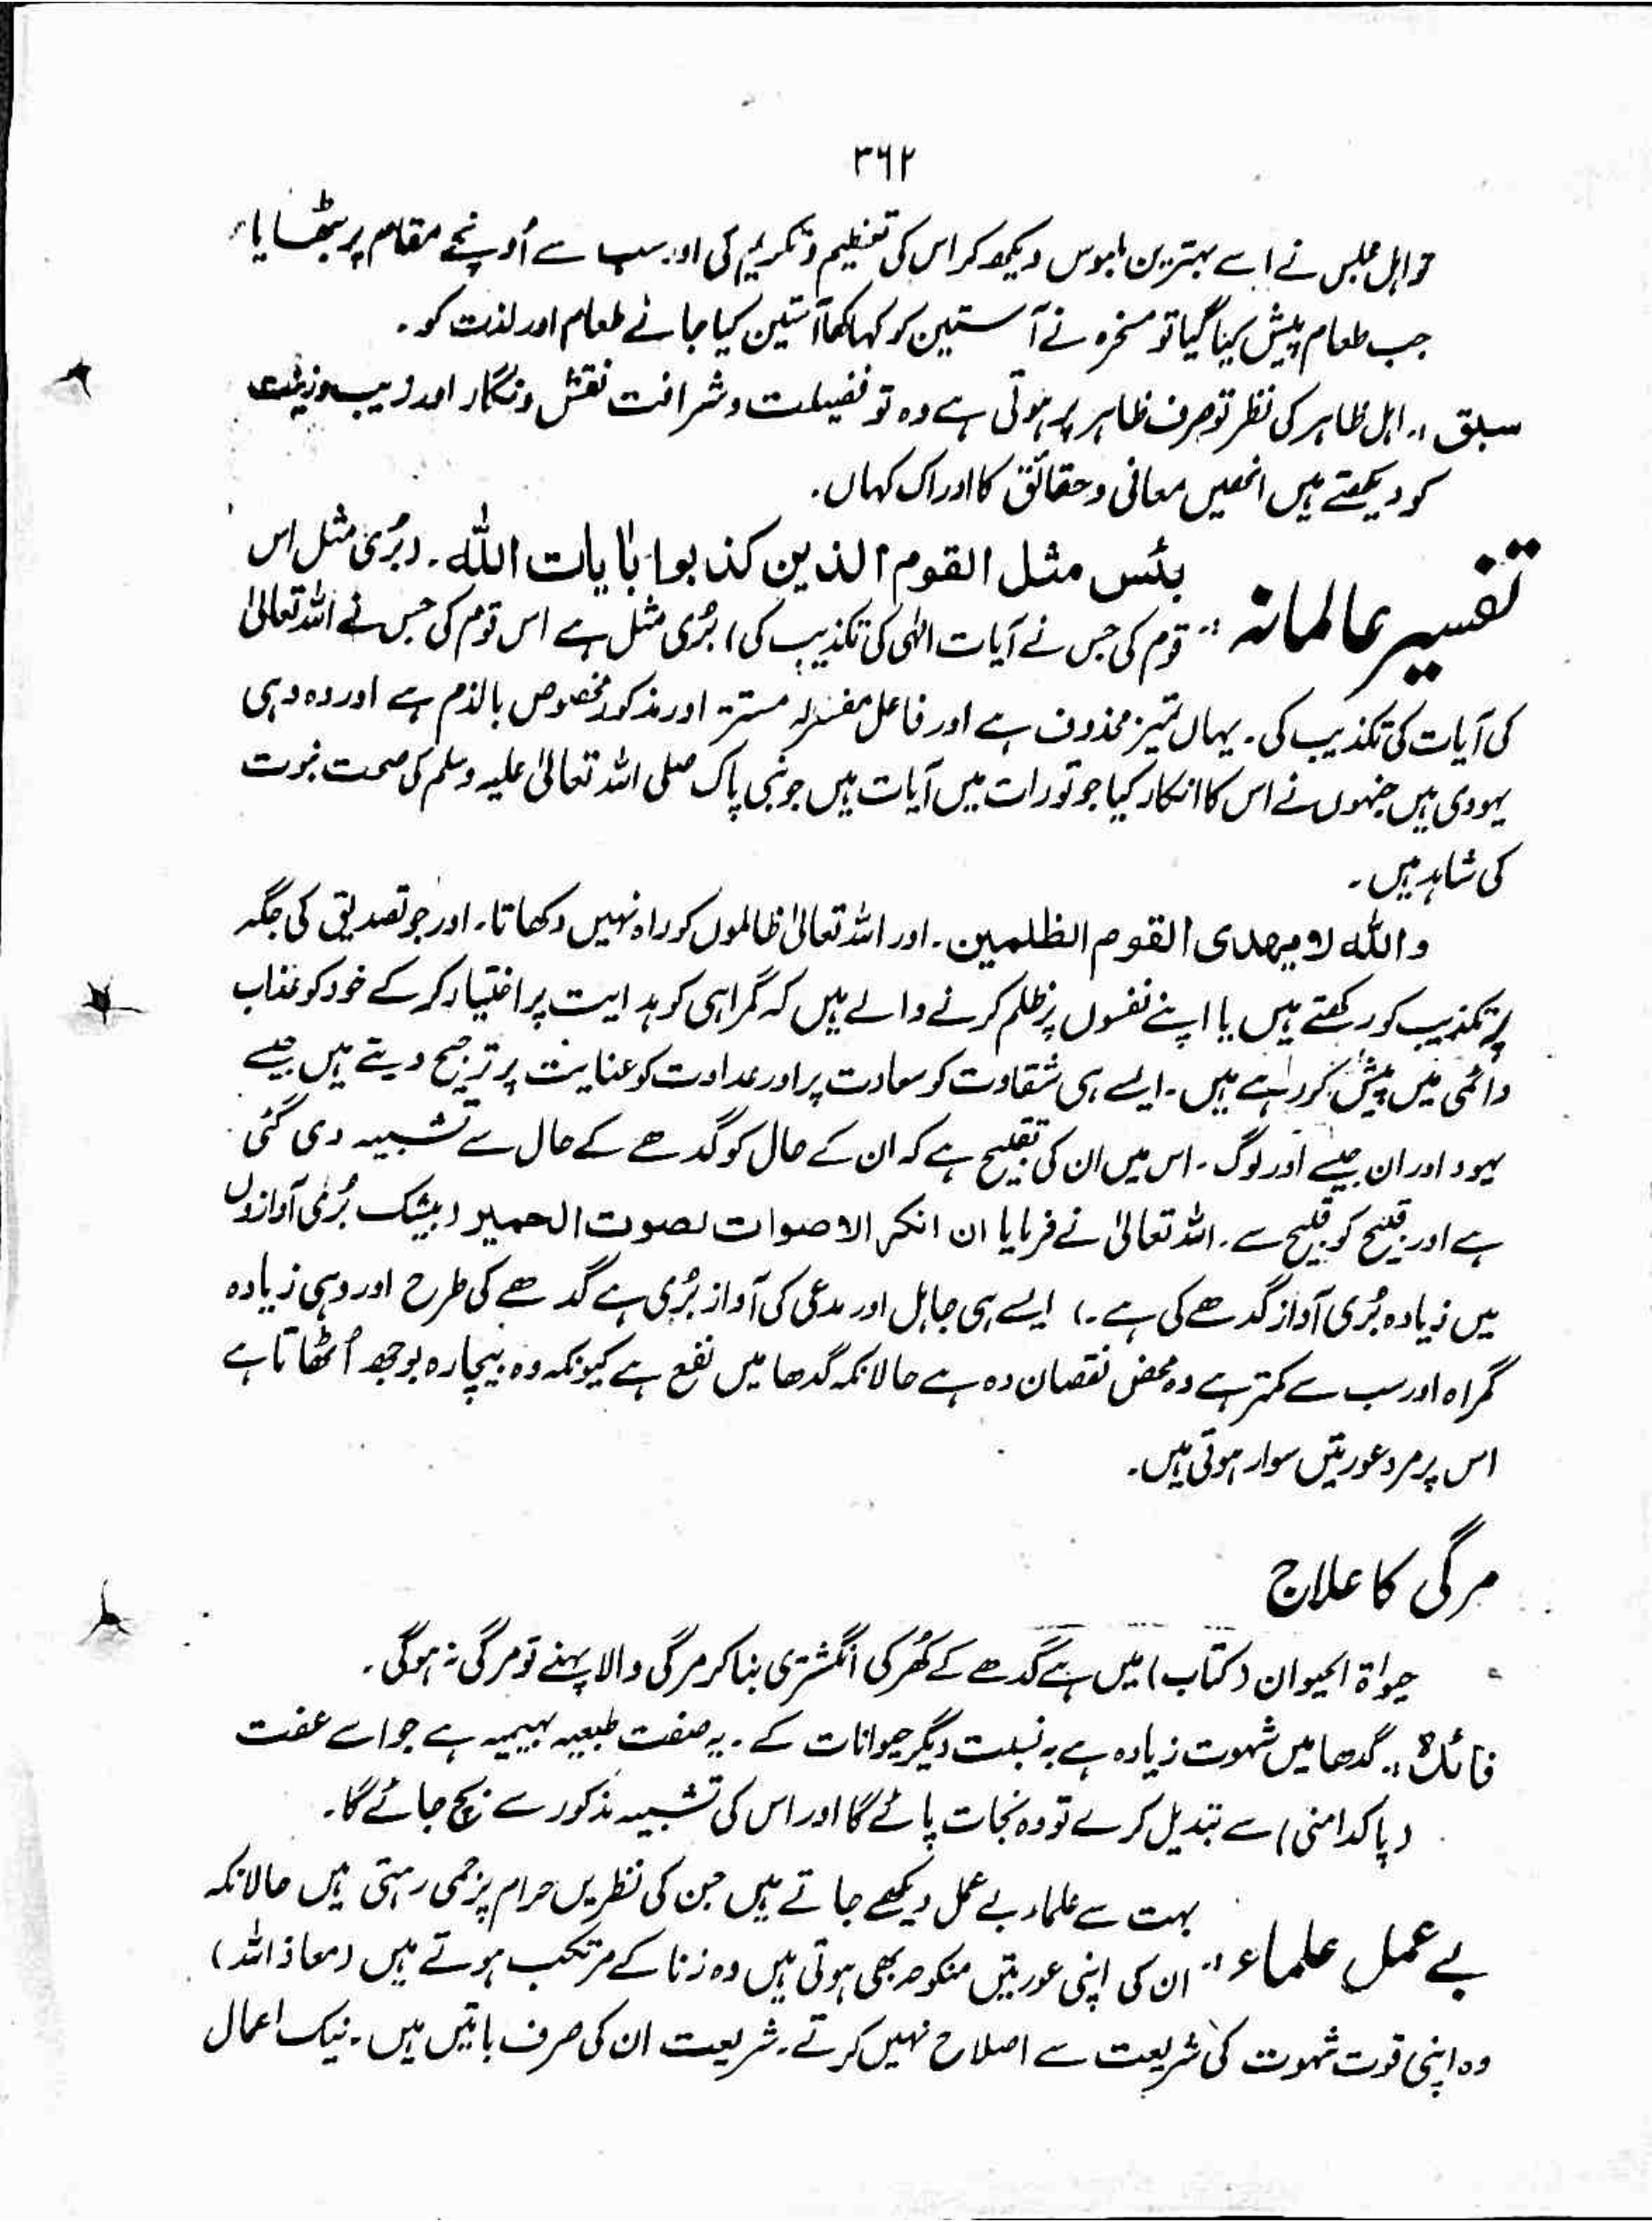 ۳۶۲
تو اہل مجلس نے اسے بہترین ملبوس دیکھ کر اس کی تعظیم و تکریم کی اور سب سے اُونچے مقام پر بٹھایا،
جب طعام پیش کیا گیا تو مسخرہ نے آستین کو کہا کھا آستین کیا جانے طعام اور لذت کو۔
سبق :۔ اہل ظاہر کی نظر تو صرف ظاہر پر ہوتی ہے وہ تو فضیلت و شرافت نقش و نگار اور زیب و زینت
کو دیکھتے ہیں انھیں معانی و حقائق کا ادراک کہاں۔
تفسیر عالمانہ :۔ بئس مثل القوم الذین کذبوا بآیات اللہ۔ (بُری مثل اس
قوم کی جس نے آیات الٰہی کی تکذیب کی) بُری مثل ہے اس قوم کی جس نے اللہ تعالیٰ
کی آیات کی تکذیب کی۔ یہاں تمیز محذوف ہے اور فاعل مفسرلہ مستتر اور مذکور مخصوص بالذم ہے اور وہ وہی
یہودی ہیں جنہوں نے اس کا انکار کیا جو تورات میں آیات ہیں جو نبی پاک صلی اللہ تعالیٰ علیہ وسلم کی صحت نبوت
کی شاہد ہیں۔
واللہ لا یھدی القوم الظلمین۔ اور اللہ تعالیٰ ظالموں کو راہ نہیں دکھاتا۔ اور جو تصدیق کی جگہ
پر تکذیب کو رکھتے ہیں یا اپنے نفسوں پر ظلم کرنے والے ہیں کہ گمراہی کو ہدایت پر اختیار کر کے خود کو عذاب
دائمی میں پیش کر رہے ہیں۔ ایسے ہی شقاوت کو سعادت پر اور عداوت کو عنایت پر ترجیح دیتے ہیں جیسے
یہود اور ان جیسے اور لوگ۔ اس میں ان کی تقبیح ہے کہ ان کے حال کو گدھے کے حال سے تشبیہ دی گئی
ہے اور قبیح کو قبیح سے۔ اللہ تعالیٰ نے فرمایا ان انکر الاصوات لصوت الحمیر (بیشک بُری آوازوں
میں زیادہ بُری آواز گدھے کی ہے۔) ایسے ہی جاہل اور مدعی کی آواز بُری ہے گدھے کی طرح اور وہی زیادہ
گمراہ اور سب سے کمتر ہے وہ محض نقصان دہ ہے حالانکہ گدھا میں نفع ہے کیونکہ وہ بیچارہ بوجھ اُٹھاتا ہے
اس پر مرد عورتیں سوار ہوتی ہیں۔
مرگی کا علاج
حیواۃ الحیوان (کتاب) میں ہے گدھے کے کھُر کی انگشتری بنا کر مرگی والا پہنے تو مرگی نہ ہوگی۔
فائدہ :۔ گدھا میں شہوت زیادہ ہے بہ نسبت دیگر حیوانات کے۔ یہ صفت طبعیہ بہیمیہ ہے جو اسے عفت
(پاکدامنی) سے تبدیل کرے تو وہ نجات پائے گا اور اس کی تشبیہ مذکور سے بچ جائے گا۔
بے عمل علماء :۔ بہت سے علماء بے عمل دیکھے جاتے ہیں جن کی نظریں حرام پر جمی رہتی ہیں حالانکہ
ان کی اپنی عورتیں منکوحہ بھی ہوتی ہیں وہ زنا کے مرتکب ہوتے ہیں (معاذ اللہ)
وہ اپنی قوت شہوت کی شریعت سے اصلاح نہیں کرتے۔ شریعت ان کی صرف باتیں ہیں۔ نیک اعمال